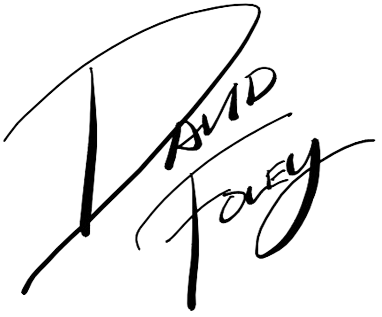 David
Foley